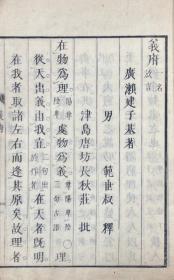 義府
廣瀬建子基著
男 範世叔 釋
津島唐坊長秋莊批
在物爲理 處物爲義 ○理
從天出義由我立 二句出 在天者既明
在我者取諸左右而逢其原矣故理者